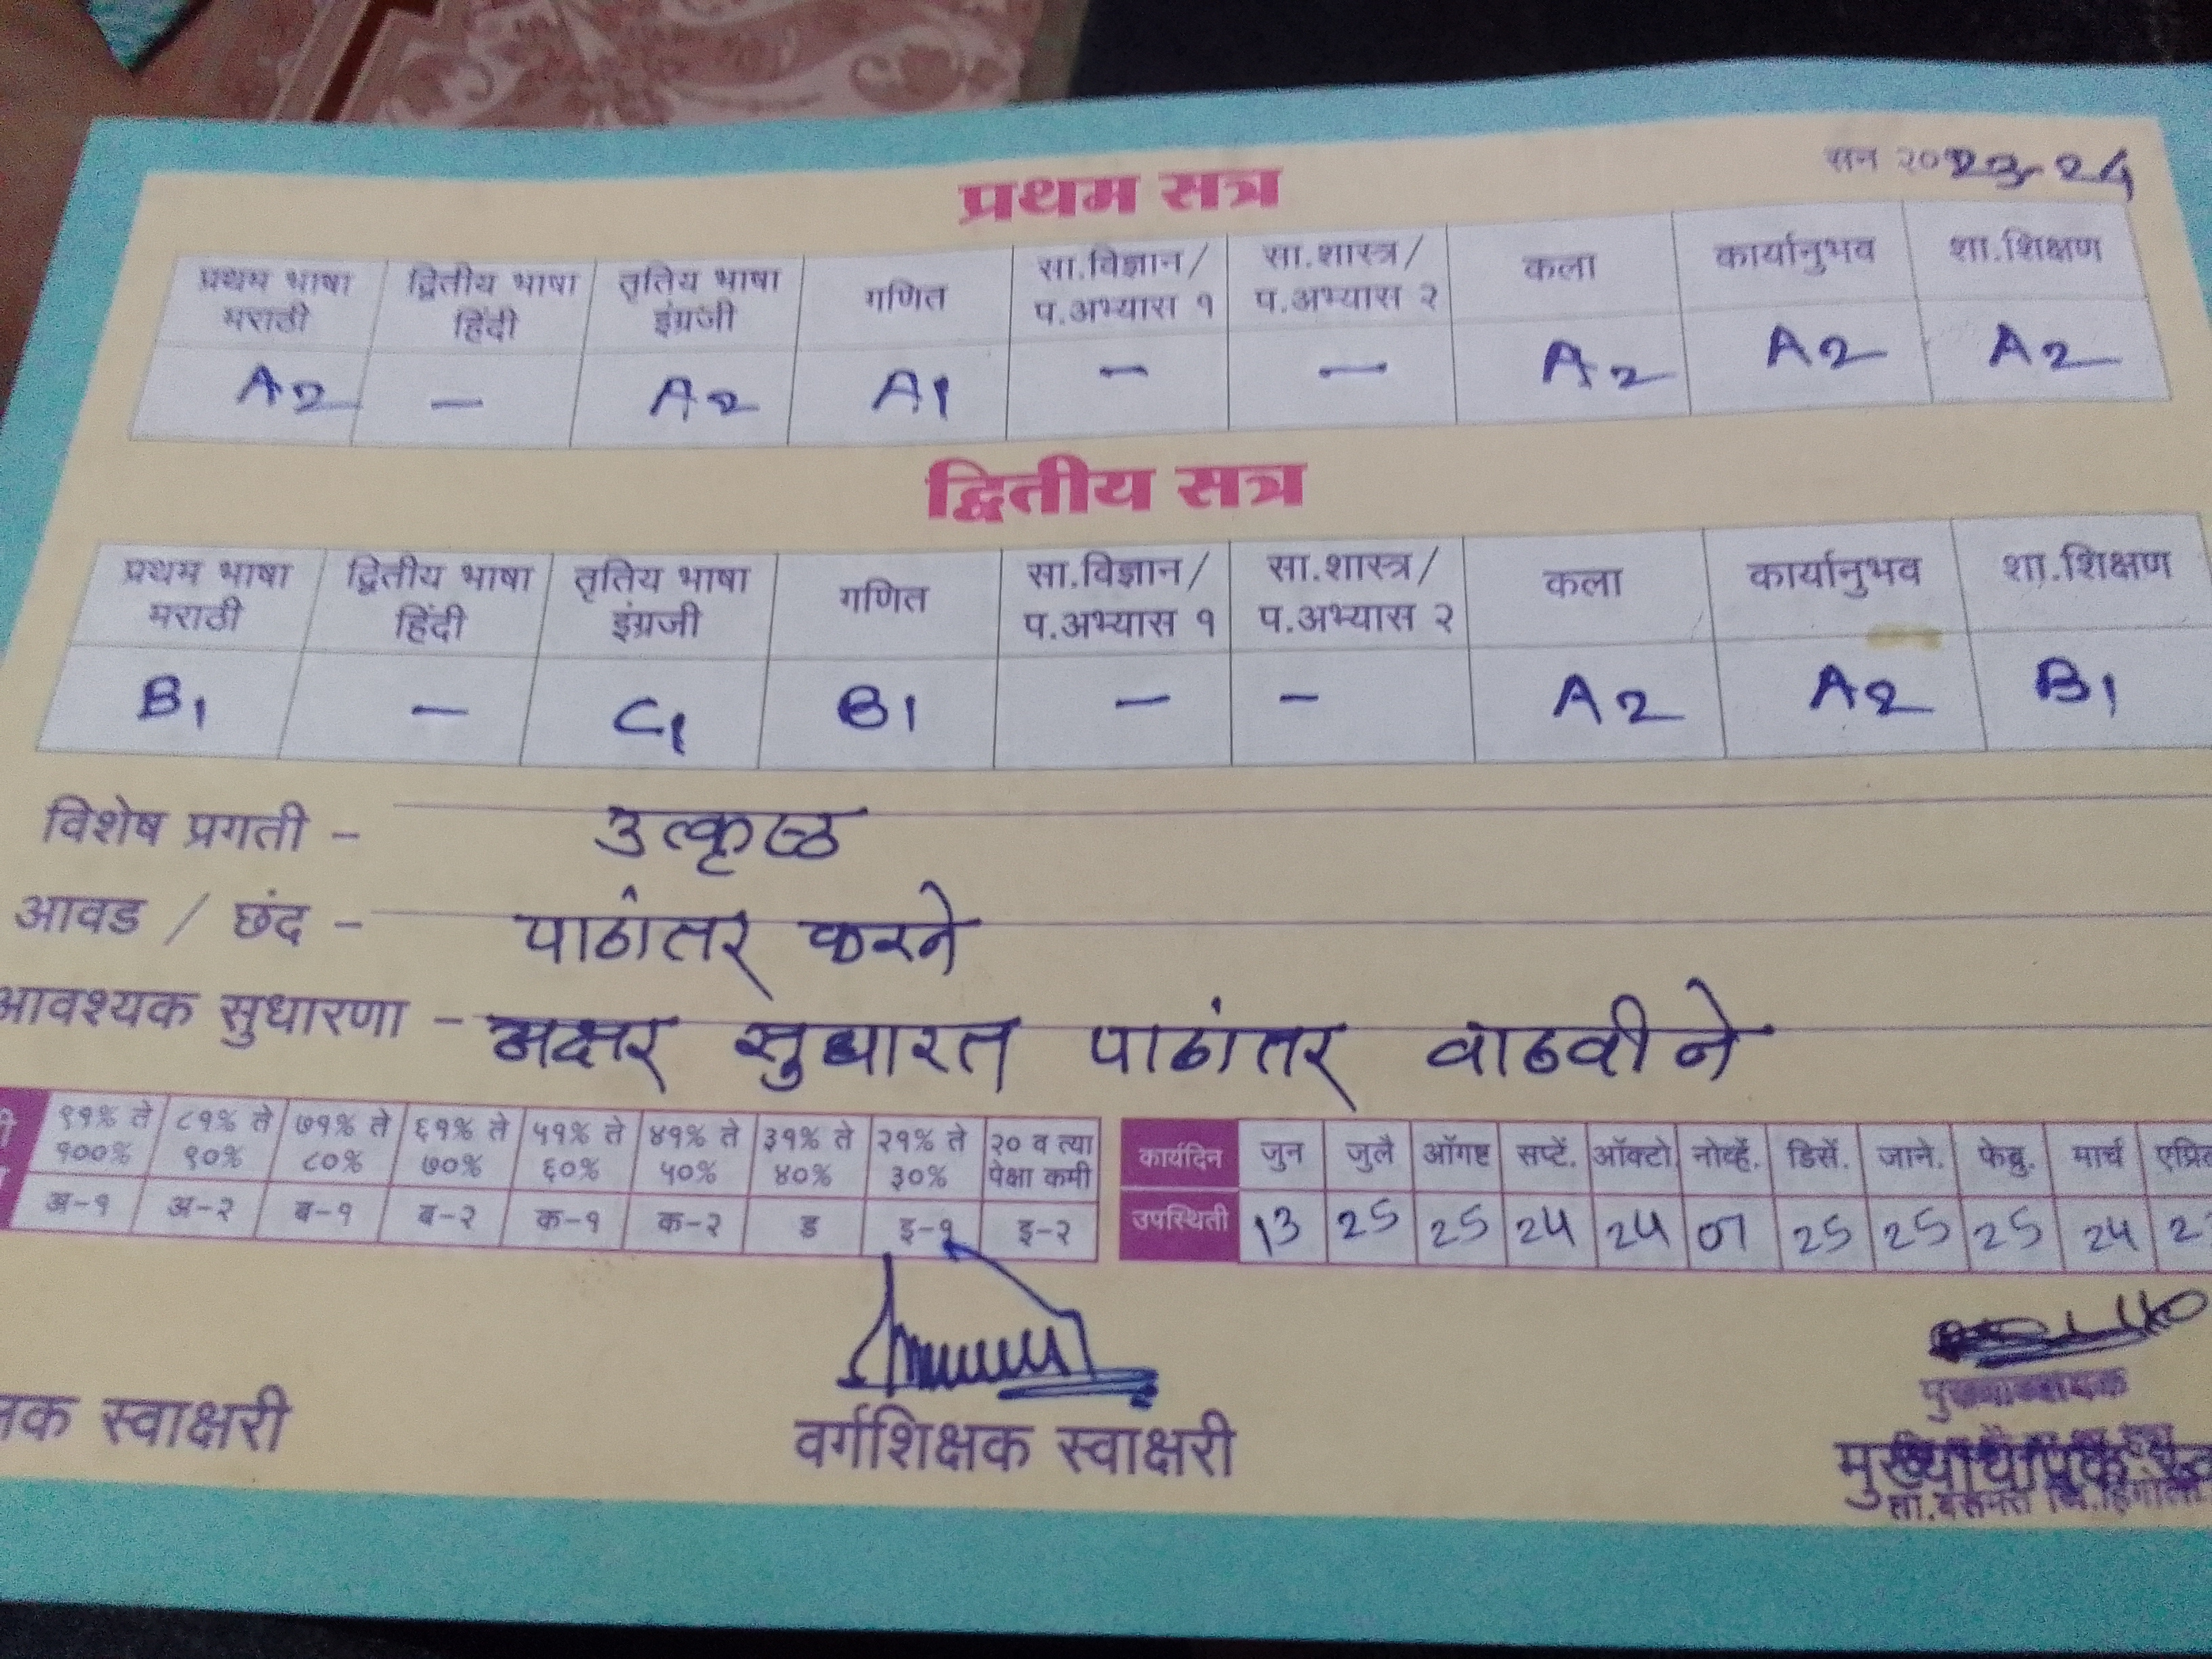 सन २०23-24
प्रथम सत्र
प्रथम भाषा मराठी द्वितीय भाषा हिंदी तृतिय भाषा इंग्रजी गणित सा.विज्ञान/ प.अभ्यास १ सा.शास्त्र/ प.अभ्यास २ कला कार्यानुभव शा.शिक्षण
A2 - A2 A1 - - A2 A2 A2
द्वितीय सत्र
प्रथम भाषा मराठी द्वितीय भाषा हिंदी तृतिय भाषा इंग्रजी गणित सा.विज्ञान/ प.अभ्यास १ सा.शास्त्र/ प.अभ्यास २ कला कार्यानुभव शा.शिक्षण
B1 - C1 B1 - - A2 A2 B1
विशेष प्रगती - उत्कृष्ठ
आवड / छंद - पाठांतर करने
आवश्यक सुधारणा - अक्षर सुधारत पाठांतर वाढवीने
९१% ते १००% ८१% ते ९०% ७१% ते ८०% ६१% ते ७०% ५१% ते ६०% ४१% ते ५०% ३१% ते ४०% २१% ते ३०% २० व त्या पेक्षा कमी
अ-१ अ-२ ब-१ ब-२ क-१ क-२ ड इ-१ इ-२
कार्यदिन जुन जुलै ऑगष्ट सप्टें. ऑक्टो. नोव्हें. डिसें. जाने. फेब्रु. मार्च
उपस्थिती 13 25 25 24 24 07 25 25 25 24
स्वाक्षरी
वर्गशिक्षक स्वाक्षरी
मुख्याध्यापक